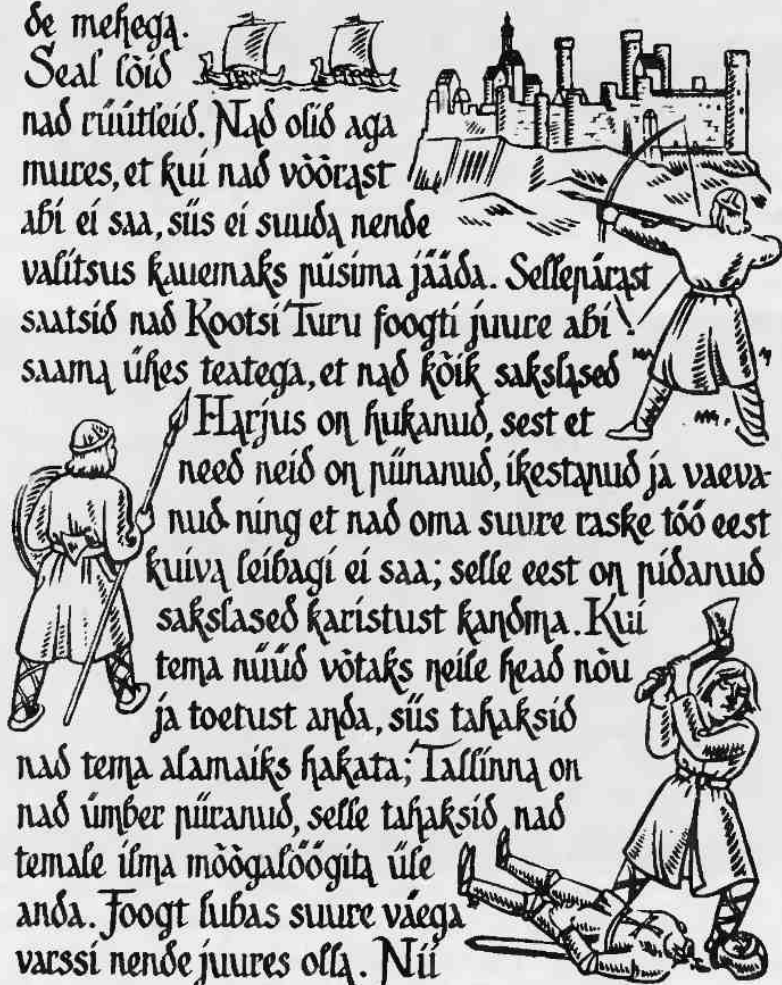 de mehega.
Seal lõid
nad rüütleid. Nad olid aga
mures, et kui nad võõrast
abi ei saa, siis ei suuda nende
valitsus kauemaks püsima jääda. Sellepärast
saatsid nad Rootsi Turu foogti juure abi
saama ühes teatega, et nad kõik sakslased
Harjus on hukanud, sest et
need neid on piinanud, ikestanud ja vaeva-
nud ning et nad oma suure raske töö eest
kuiva leibagi ei saa; selle eest on pidanud
sakslased karistust kandma. Kui
tema nüüd võtaks neile head nõu
ja toetust anda, siis tahaksid
nad tema alamaiks hakata; Tallinna on
nad ümber piiranud, selle tahaksid nad
temale ilma mõõgalöögita üle
anda. Foogt lubas suure väega
varssi nende juures olla. Nii